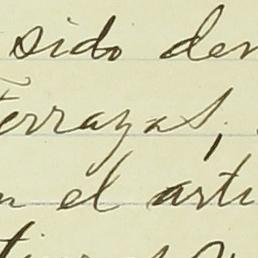 sido den
Terrazas,
n el arti